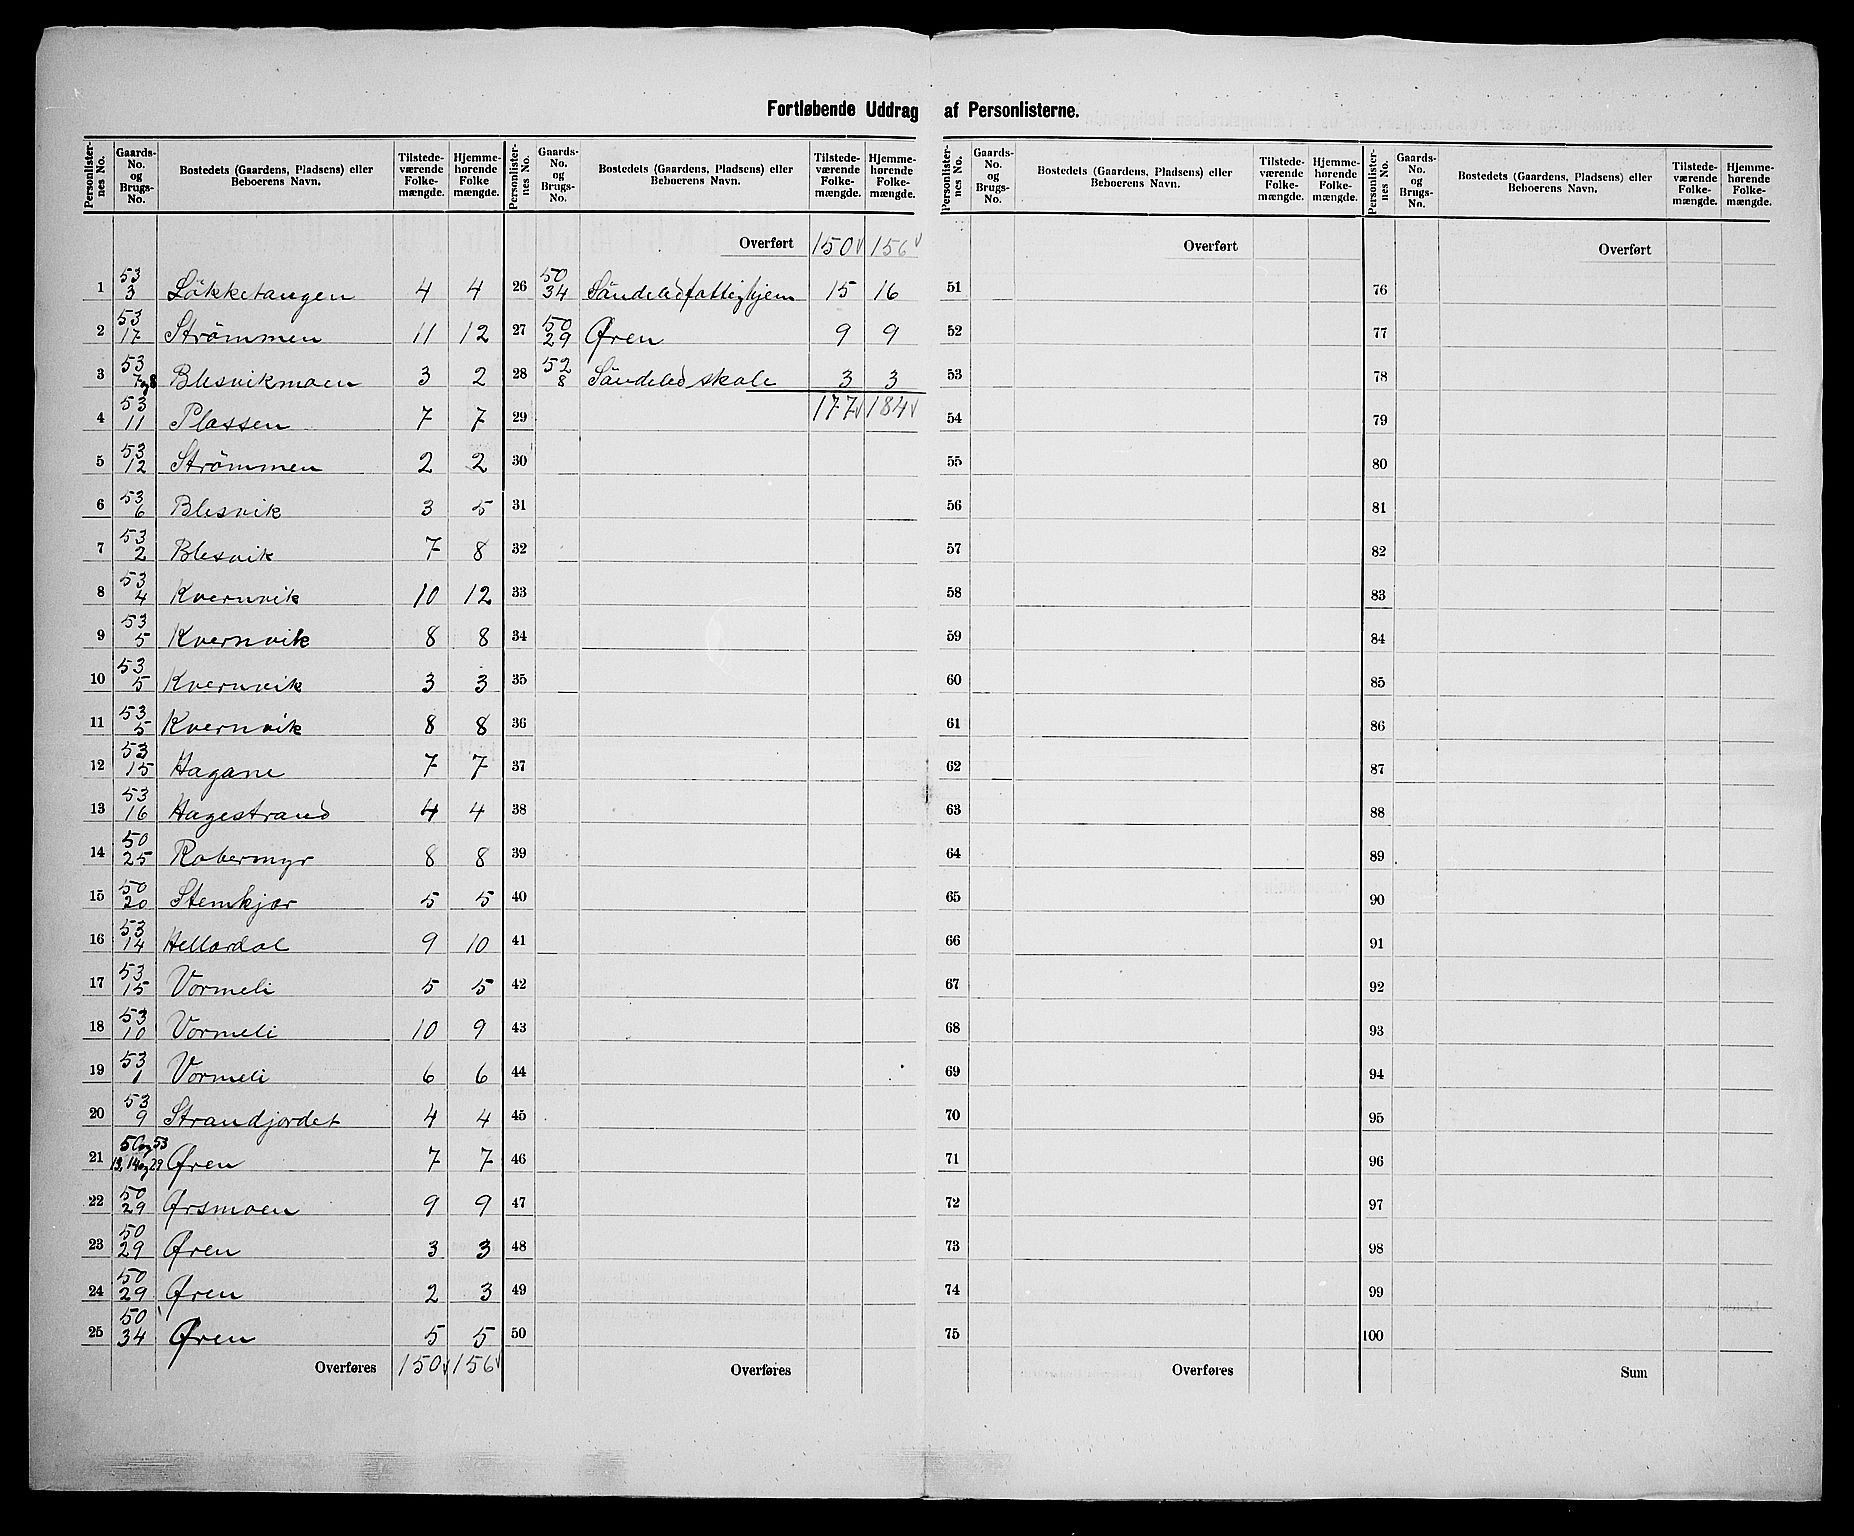 Fortløbende Uddrag af Personlisterne.
Personlister-nes No. Gaards-No. og Brugs-No. Bostedets (Gaardens, Pladsens) eller Beboerens Navn. Tilstede-værende Folke-mængde. Hjemme-hørende Folke mængde.
Personlister-nes No. Gaards-No. og Brugs-No. Bostedets (Gaardens, Pladsens) eller Beboerens Navn. Tilstede-værende Folke-mængde. Hjemme-hørende Folke-mængde.
Personlister-nes No. Gaards-No. og Brugs-No. Bostedets (Gaardens, Pladsens) eller Beboerens Navn. Tilstede-værende Folke-mængde. Hjemme-hørende Folke-mængde.
Personlister-nes No. Gaards-No. og Brugs-No. Bostedets (Gaardens, Pladsens) eller Beboerens Navn. Tilstede-værende Folke-mængde. Hjemme-hørende Folke-mængde.
1 53/3 Løkketangen 4 4
2 53/17 Strömmen 11 12
3 53/7og8 Blesvikmoen 3 2
4 53/11 Plassen 7 7
5 53/12 Strömmen 2 2
6 53/6 Blesvik 3 5
7 53/2 Blesvik 7 8
8 53/4 Kvernvik 10 12
9 53/5 Kvernvik 8 8
10 53/5 Kvernvik 3 3
11 53/5 Kvernvik 8 8
12 53/15 Hagane 7 7
13 53/16 Hagestrand 4 4
14 50/25 Robermyr 8 8
15 50/20 Stemkjær 5 5
16 53/14 Hellardal 9 10
17 53/15 Vormeli 5 5
18 53/10 Vormeli 10 9
19 53/1 Vormeli 6 6
20 53/9 Strandjordet 4 4
21 50og53/13,14og29 Øren 7 7
22 50/29 Ørsmoen 9 9
23 50/29 Øren 3 3
24 50/29 Øren 2 3
25 50/34 Øren 5 5
Overføres 150 156
Overført 150 156
26 50/34 Söndeled fattighjem 15 16
27 50/29 Øren 9 9
28 52/8 Söndeled skole 3 3
29 177 184
30
31
32
33
34
35
36
37
38
39
40
41
42
43
44
45
46
47
48
49
50
Overføres
Overført
51
52
53
54
55
56
57
58
59
60
61
62
63
64
65
66
67
68
69
70
71
72
73
74
75
Overføres
Overført
76
77
78
79
80
81
82
83
84
85
86
87
88
89
90
91
92
93
94
95
96
97
98
99
100
Sum